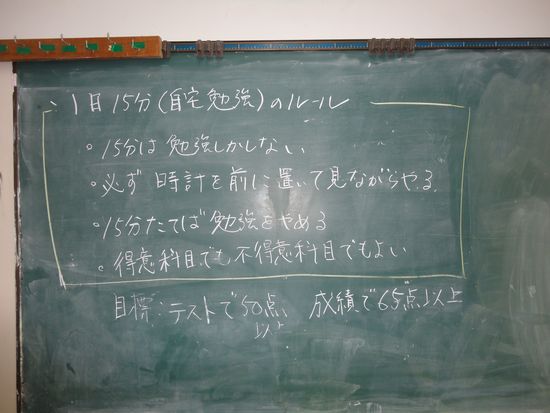 1日15分(自宅勉強)のルール
。15分は勉強しかしない
。必ず時計を前に置いて見ながらやる。
。15分たてば勉強をやめる
。得意科目でも不得意科目でもよい
目標:テストで50点以上 成績で65点以上